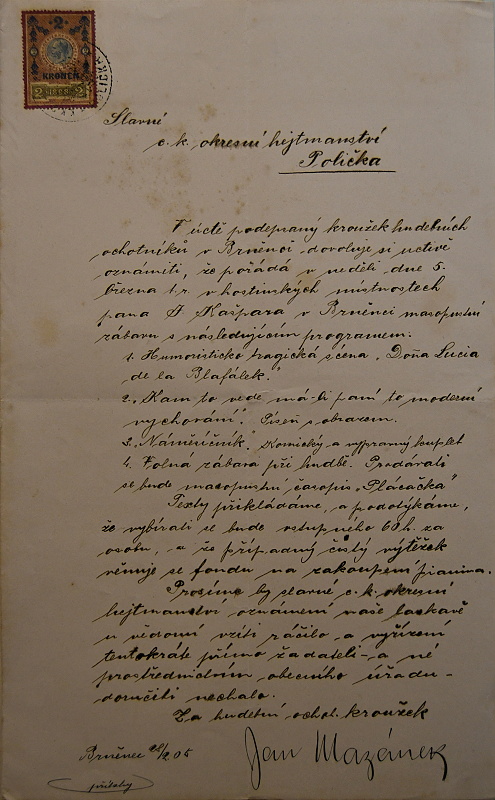 2
KRONEN
2 2
POLIČKA
Slavné
c. k. okresní hejtmanství
Polička
V úctě podepsaný kroužek hudebních
ochotníků v Brněnci dovoluje si uctivě
oznámiti, že pořádá v neděli dne 5.
března t. r. v hostinských místnostech
pana A. Kašpara v Brněnci masopustní
zábavu s následujícím programem:
1. Humoristicko tragická scéna „Doňa Lucia
de la Blafálek."
2. „Kam to vede má-li paní to moderní
vychování". Píseň s obrazem.
3. „Náměsíčník". Komický a výpravný kouplet
4. Volná zábava při hudbě. Prodávati
se bude masopustní časopis „Plácačka"
Texty přikládáme, a podotýkáme,
že vybírati se bude vstupného 60 h. za
osobu, a že případný čistý výtěžek
věnuje se fondu na zakoupení pianina.
Prosíme by slavné c. k. okresní
hejtmanství oznámení naše laskavě
u vědomí vzíti ráčilo a vyřízení
tentokráte přímo žadateli - a né
prostřednictvím obecního úřadu -
doručiti nechalo.
Za hudební ochot. kroužek
Brněnec 28/2 05
Jan Mazánek
přílohy